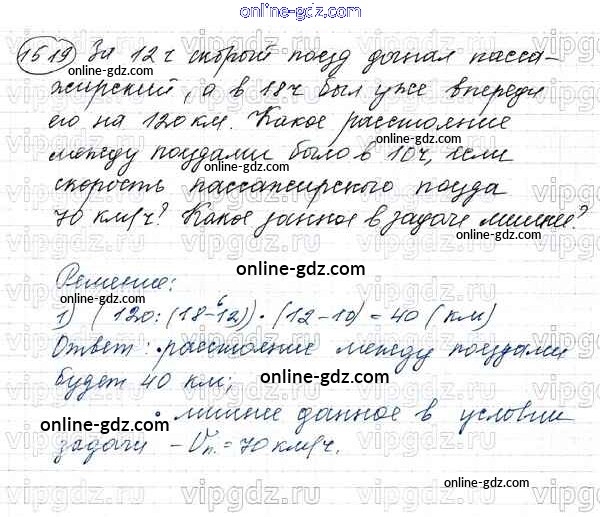 online-gdz.com
1519 За 12 ч скорый поезд догнал пасса-
жирский, а в 18 ч был уже впереди
его на 120 км. Какое расстояние
между поездами было в 10 ч, если
скорость пассажирского поезда
70 км/ч? Какое данное в задаче лишнее?
Решение:
1) (120:(18-12))·(12-10)=40 (км)
6
Ответ: ·расстояние между поездами
будет 40 км;
· лишнее данное в условии
задачи - Vп. = 70 км/ч.
online-gdz.com
online-gdz.com
online-gdz.com
online-gdz.com
online-gdz.com
online-gdz.com
online-gdz.com
online-gdz.com
online-gdz.com
online-gdz.com
vipgdz.com